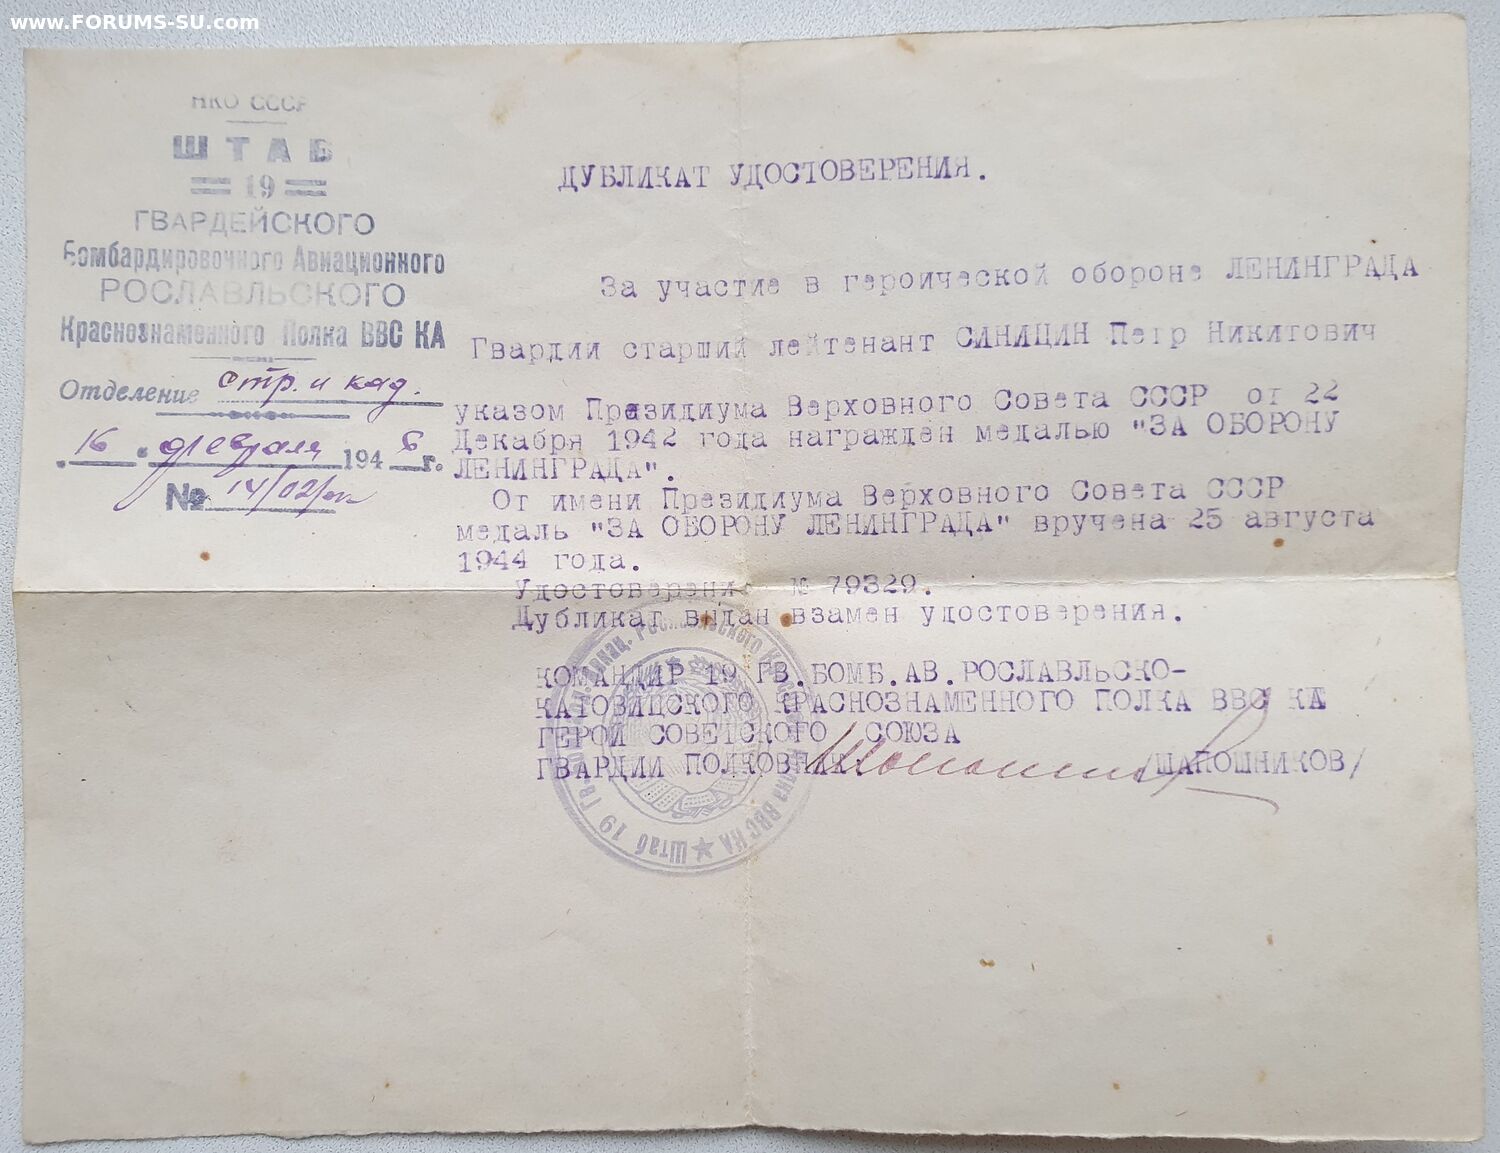 www.FORUMS-SU.com
НКО СССР
ШТАБ
19
ГВАРДЕЙСКОГО
Бомбардировочного Авиационного
РОСЛАВЛЬСКОГО
Краснознаменного Полка ВВС КА
Отделение стр. и кад.
16 февраля 1946 г.
№ 14/02/
ДУБЛИКАТ УДОСТОВЕРЕНИЯ.
За участие в героической обороне ЛЕНИНГРАДА
Гвардии старший лейтенант СИНИЦИН Петр Никитович
указом Президиума Верховного Совета СССР от 22
Декабря 1942 года награжден медалью "ЗА ОБОРОНУ
ЛЕНИНГРАДА".
От имени Президиума Верховного Совета СССР
медаль "ЗА ОБОРОНУ ЛЕНИНГРАДА" вручена 25 августа
1944 года.
Удостоверение № 79329.
Дубликат выдан взамен удостоверения.
КОМАНДИР 19 ГВ.БОМБ.АВ.РОСЛАВЛЬСКО-
КАТОВИЦСКОГО КРАСНОЗНАМЕННОГО ПОЛКА ВВС КА
ГЕРОЙ СОВЕТСКОГО СОЮЗА
ГВАРДИИ ПОЛКОВНИК /ШАПОШНИКОВ/
Штаб 19 Авиац. Рославльского Полка ВВС КА